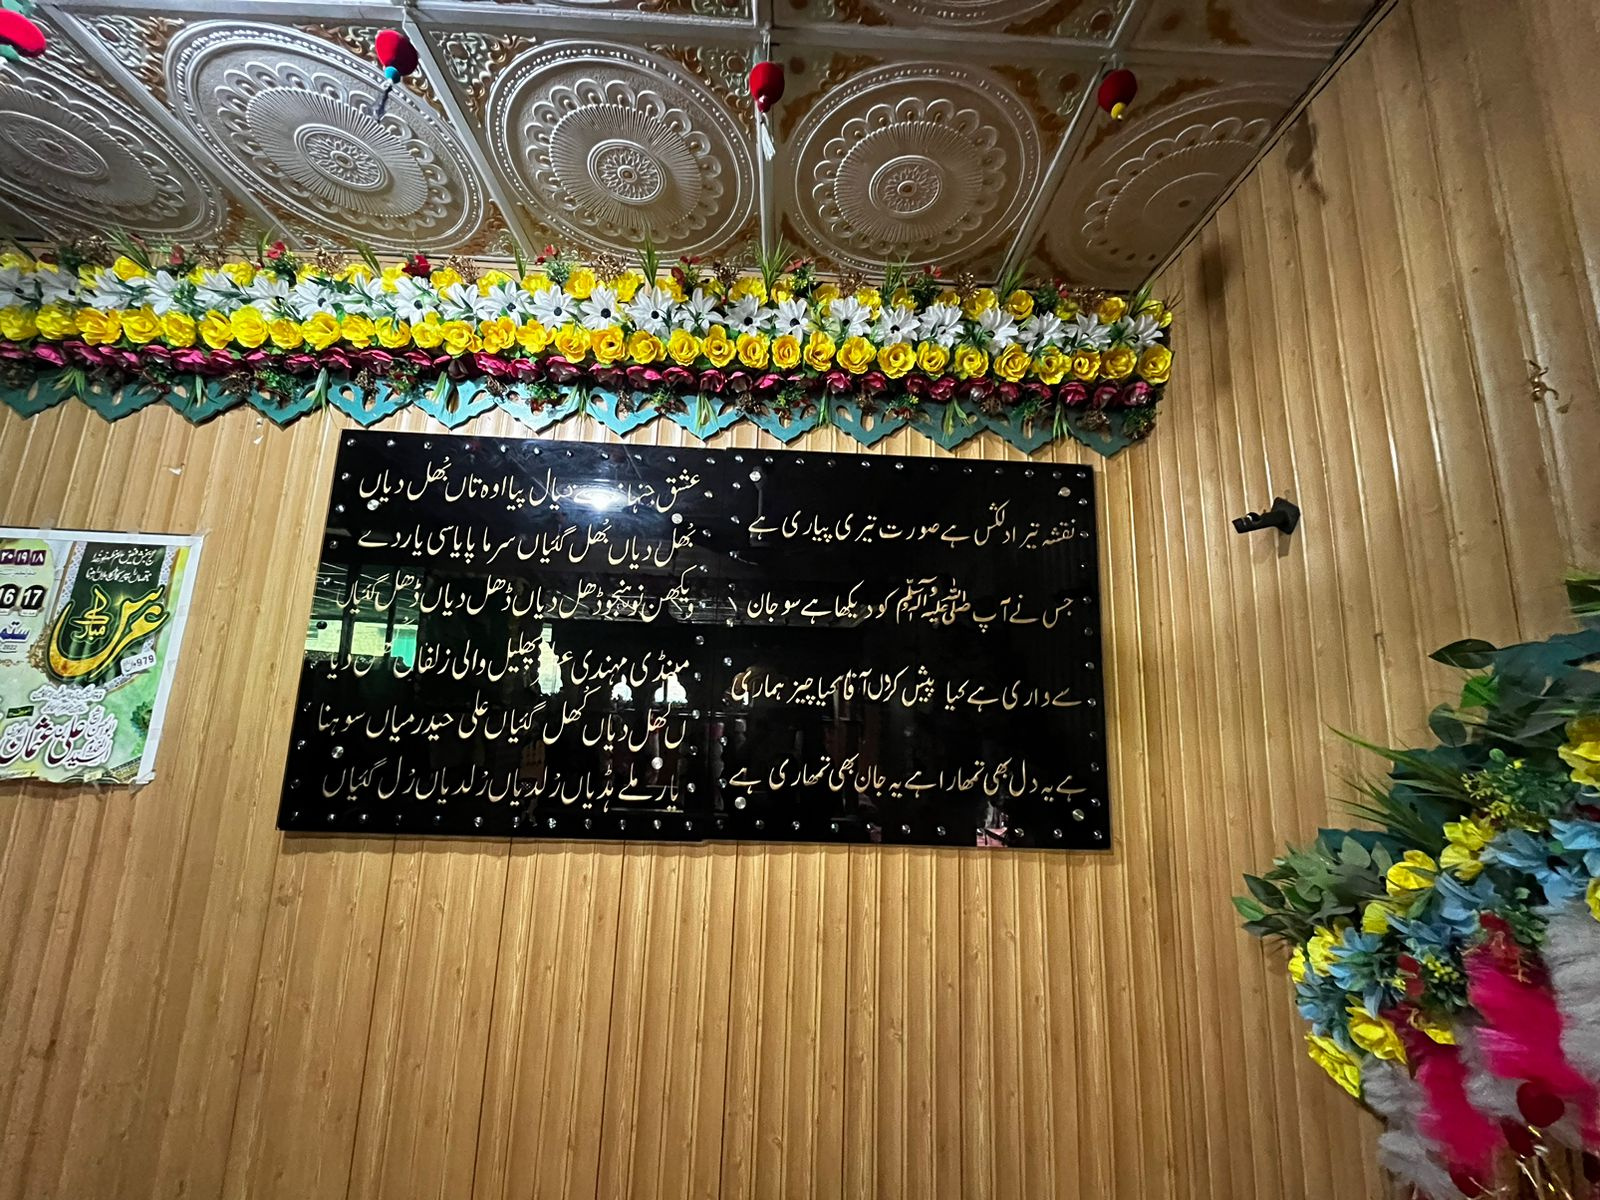 نقشہ تیرا دلکش ہے صورت تیری پیاری ہے
جس نے آپ صلى الله عليه وسلم کو دیکھا ہے سو جان
سے واری ہے کیا پیش کروں آقا کیا چیز ہماری
ہے یہ دل بھی تمھارا ہے یہ جان بھی تمھاری ہے
عشق پیا اوہ تاں بُھل دیاں
بُھل دیاں بُھل گئیاں سرما پایا سی یار دے
ویکھن نوں ہنجو ڈھل دیاں ڈھل دیاں ڈھل گئیاں
مینڈی مہندی پھلیل والی زلفاں
کُھل دیاں کُھل گئیاں علی حیدر میاں سوہنا
یار ملے ہڈیاں رُلدیاں رُلدیاں رُل گئیاں
۱۸ ۱۹ ۲۰
16 17
2022
عرس مبارک
979
علی عثمان